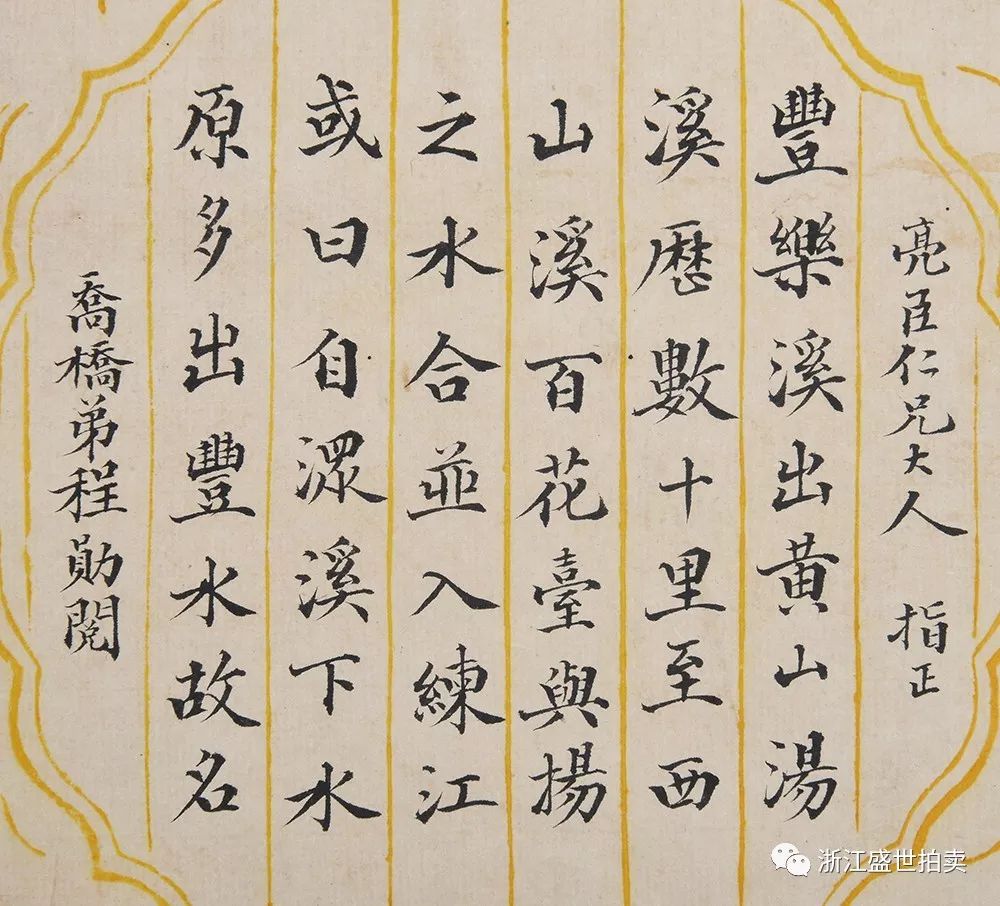 亮臣仁兄大人 指正
豐樂溪出黄山湯
溪歷數十里至西
山溪百花臺與揚
之水合並入練江
或曰自潀溪下水
原多出豐水故名
喬橋弟程勛閱
浙江盛世拍卖